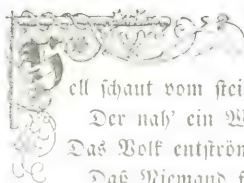 Hell schaut vom stei
Der nah' ein W
Das Volk entströn
Daß Niemand f